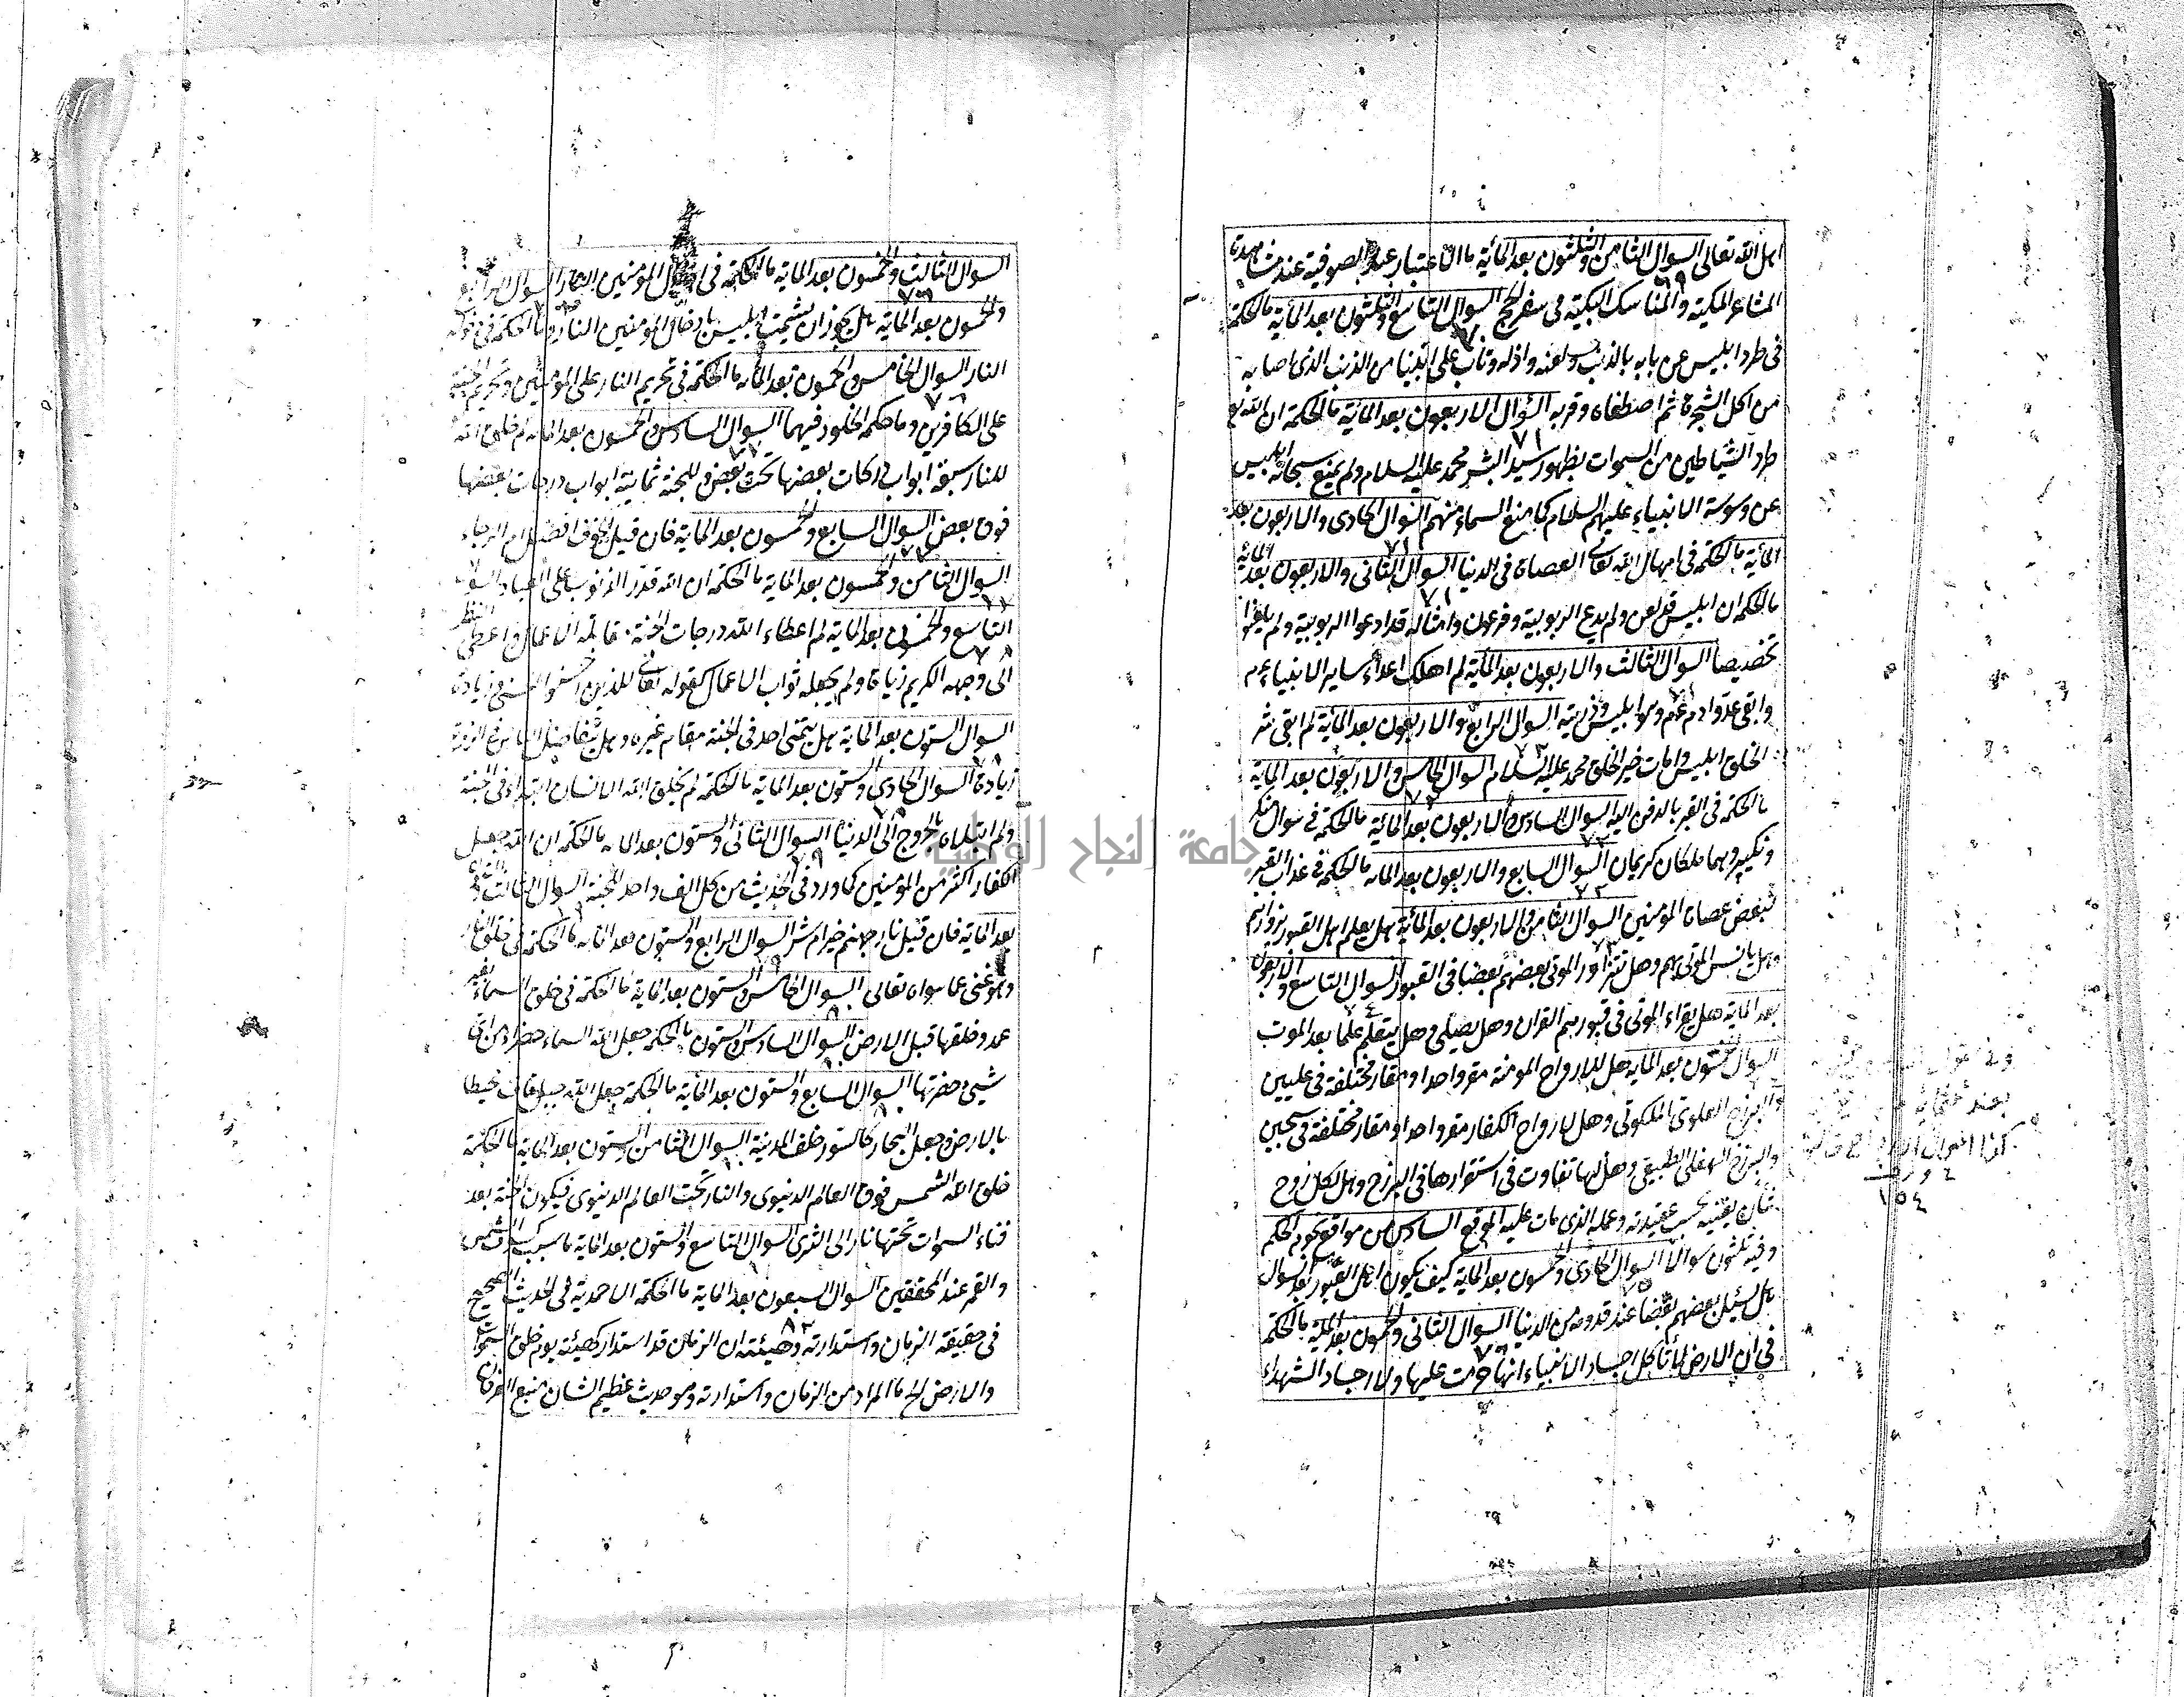 اهل الله تعالى السوال الثامن والثلثون بعد المائة ما الاعتبار عند الصوفية عند مشاهدة
المشاعر المكية والمناسك البكية في سفر الحج السوال التاسع والثلثون بعد المائة ما الحكمة
في طرد ابليس عن بابه بالذنب ولعنه واذله وتاب على ابينا من الذنب الذي اصابه
من اكل الشجرة ثم اصطفاه وقربه السؤال الاربعون بعد المائة ما الحكمة ان الله تع
طرد الشياطين من السموات بظهور سيد البشر محمد عليه السلام ولم يمنع سبحانه ابليس
عن وسوسة الانبياء عليهم السلام كما منع السماء منهم السوال الحادى والاربعون بعد
المائة ما الحكمة في امهال الله تعالى العصاة في الدنيا السوال الثانى والاربعون بعد المائة
ما الحكمة ان ابليس قد لعن ولم يدع الربوبية وفرعون وامثاله قد ادعوا الربوبية ولم يلعنوا
تخصيصا السوال الثالث والاربعون بعد المائة لم اهلك اعداء ساير الانبياء عم
وابقى عدو ادم عم وهو ابليس وذريته السوال الرابع والاربعون بعد المائة لم ابقى شر
الخلق ابليس وامات خير الخلق محمد عليه السلام السوال الخامس والاربعون بعد المائة
ما الحكمة في القبر بالدفن اليه السوال السادس والاربعون بعد المائة ما الحكمة في سوال منكر
ونكير وهما ملكان كريمان السوال السابع والاربعون بعد المائة ما الحكمة في عذاب القبر
لبعض عصاة المؤمنين السوال الثامن والاربعون بعد المائة هل يعلم اهل القبور بزوارهم
وهل يانس الموتى بهم وهل تتزاور الموتى بعضهم بعضا في القبور السوال التاسع والاربعون
بعد المائة هل يقراء الموتى في قبورهم القران وهل يصلى وهل يتعلم علما بعد الموت
السوال الخمسون بعد المائة هل للارواح المومنة مقر واحد او مقار مختلفة في عليين
والبرزخ العلوى الملكوتى وهل لارواح الكفار مقر واحد او مقار مختلفة في سجين
والبرزخ السفلى الطبيعى وهل لها تفاوت في استقرارها في البرزخ وهل لكل روح
شان يعينه بحسب عقيدته وعمله الذى مات عليه الموقع السادس من مواقع نجوم الحكم
وفيه ثلثون سوالا السوال الحادى والخمسون بعد المائة كيف يكون اهل القبور بعد السوال
هل يسئل بعضهم بعضا عند قدومه من الدنيا السوال الثانى والخمسون بعد المائة ما الحكمة
في ان الارض لا تأكل اجساد الانبياء انها حرمت عليها ولا اجساد الشهداء
السوال الثالث والخمسون بعد المائة ما الحكمة في ادخال المؤمنين النار السوال الرابع
والخمسون بعد المائة هل يجوز ان يشمت ابليس بادخال المؤمنين النار وما الحكمة في خوله
النار السوال الخامس والخمسون بعد المائة ما الحكمة في تحريم النار على المومنين وتحريم الجنة
على الكافرين وما حكمة الخلود فيهما السوال السادس والخمسون بعد المائة لم خلق الله
للنار سبعة ابواب دركات بعضها تحت بعض وللجنة ثمانية ابواب درجات بعضها
فوق بعض السوال السابع والخمسون بعد المائة فان قيل الخوف افضل ام الرجاء
السوال الثامن والخمسون بعد المائة ما الحكمة ان الله قدر الذنوب على العباد السوال
التاسع والخمسون بعد المائة لم اعطاء الله درجات الجنة مقابلة الاعمال واعطى النظر
الى وجهه الكريم زيادة ولم يجعله ثواب الاعمال كقوله تعالى للذين احسنوا الحسنى وزيادة
السوال الستون بعد المائة هل يتمنى احد في الجنة مقام غيره وهل يتفاضل الناس في الرؤية
زيادة السوال الحادى والستون بعد المائة ما الحكمة لم يخلق الله الانسان ابتداء في الجنة
ولم ابتلاه بالخروج الى الدنيا السوال الثانى والستون بعد المائة ما الحكمة ان الله جعل
الكفار اكثر من المؤمنين كما ورد في الحديث من كل الف واحد للجنة السوال الثالث والستون
بعد المائة فان قيل نار جهنم خير ام شر السوال الرابع والستون بعد المائة ما الحكمة في خلق النار
وهو غنى عما سواه تعالى السوال الخامس والستون بعد المائة ما الحكمة في خلق السماء بغير
عمد وخلقها قبل الارض السوال السادس والستون ما الحكمة جعل الله السماء خضراء من اى
شيئ خضرتها السوال السابع والستون بعد المائة ما الحكمة جعل الله جبل قاف محيطا
بالارض وجعل البحار كالستور خلف المدينة السوال الثامن والستون بعد المائة ما الحكمة
خلق الله الشمس فوق العالم الدنيوى والنار تحت العالم الدنيوى فيكون الجنة بعد
فناء السموات تحتها نار الى الثرى السوال التاسع والستون بعد المائة ما سبب كسوف الشمس
والقمر عند المحققين السوال السبعون بعد المائة ما الحكمة الاحدية في الحديث الصحيح
في حقيقة الزمان واستدارته وهيئته ان الزمان قد استدار كهيئته يوم خلق السموات
والارض الخ ما المراد من الزمان واستدارته وهو حديث عظيم الشان منبع العرفان
جامعة النجاح الوطنية
١٥٤